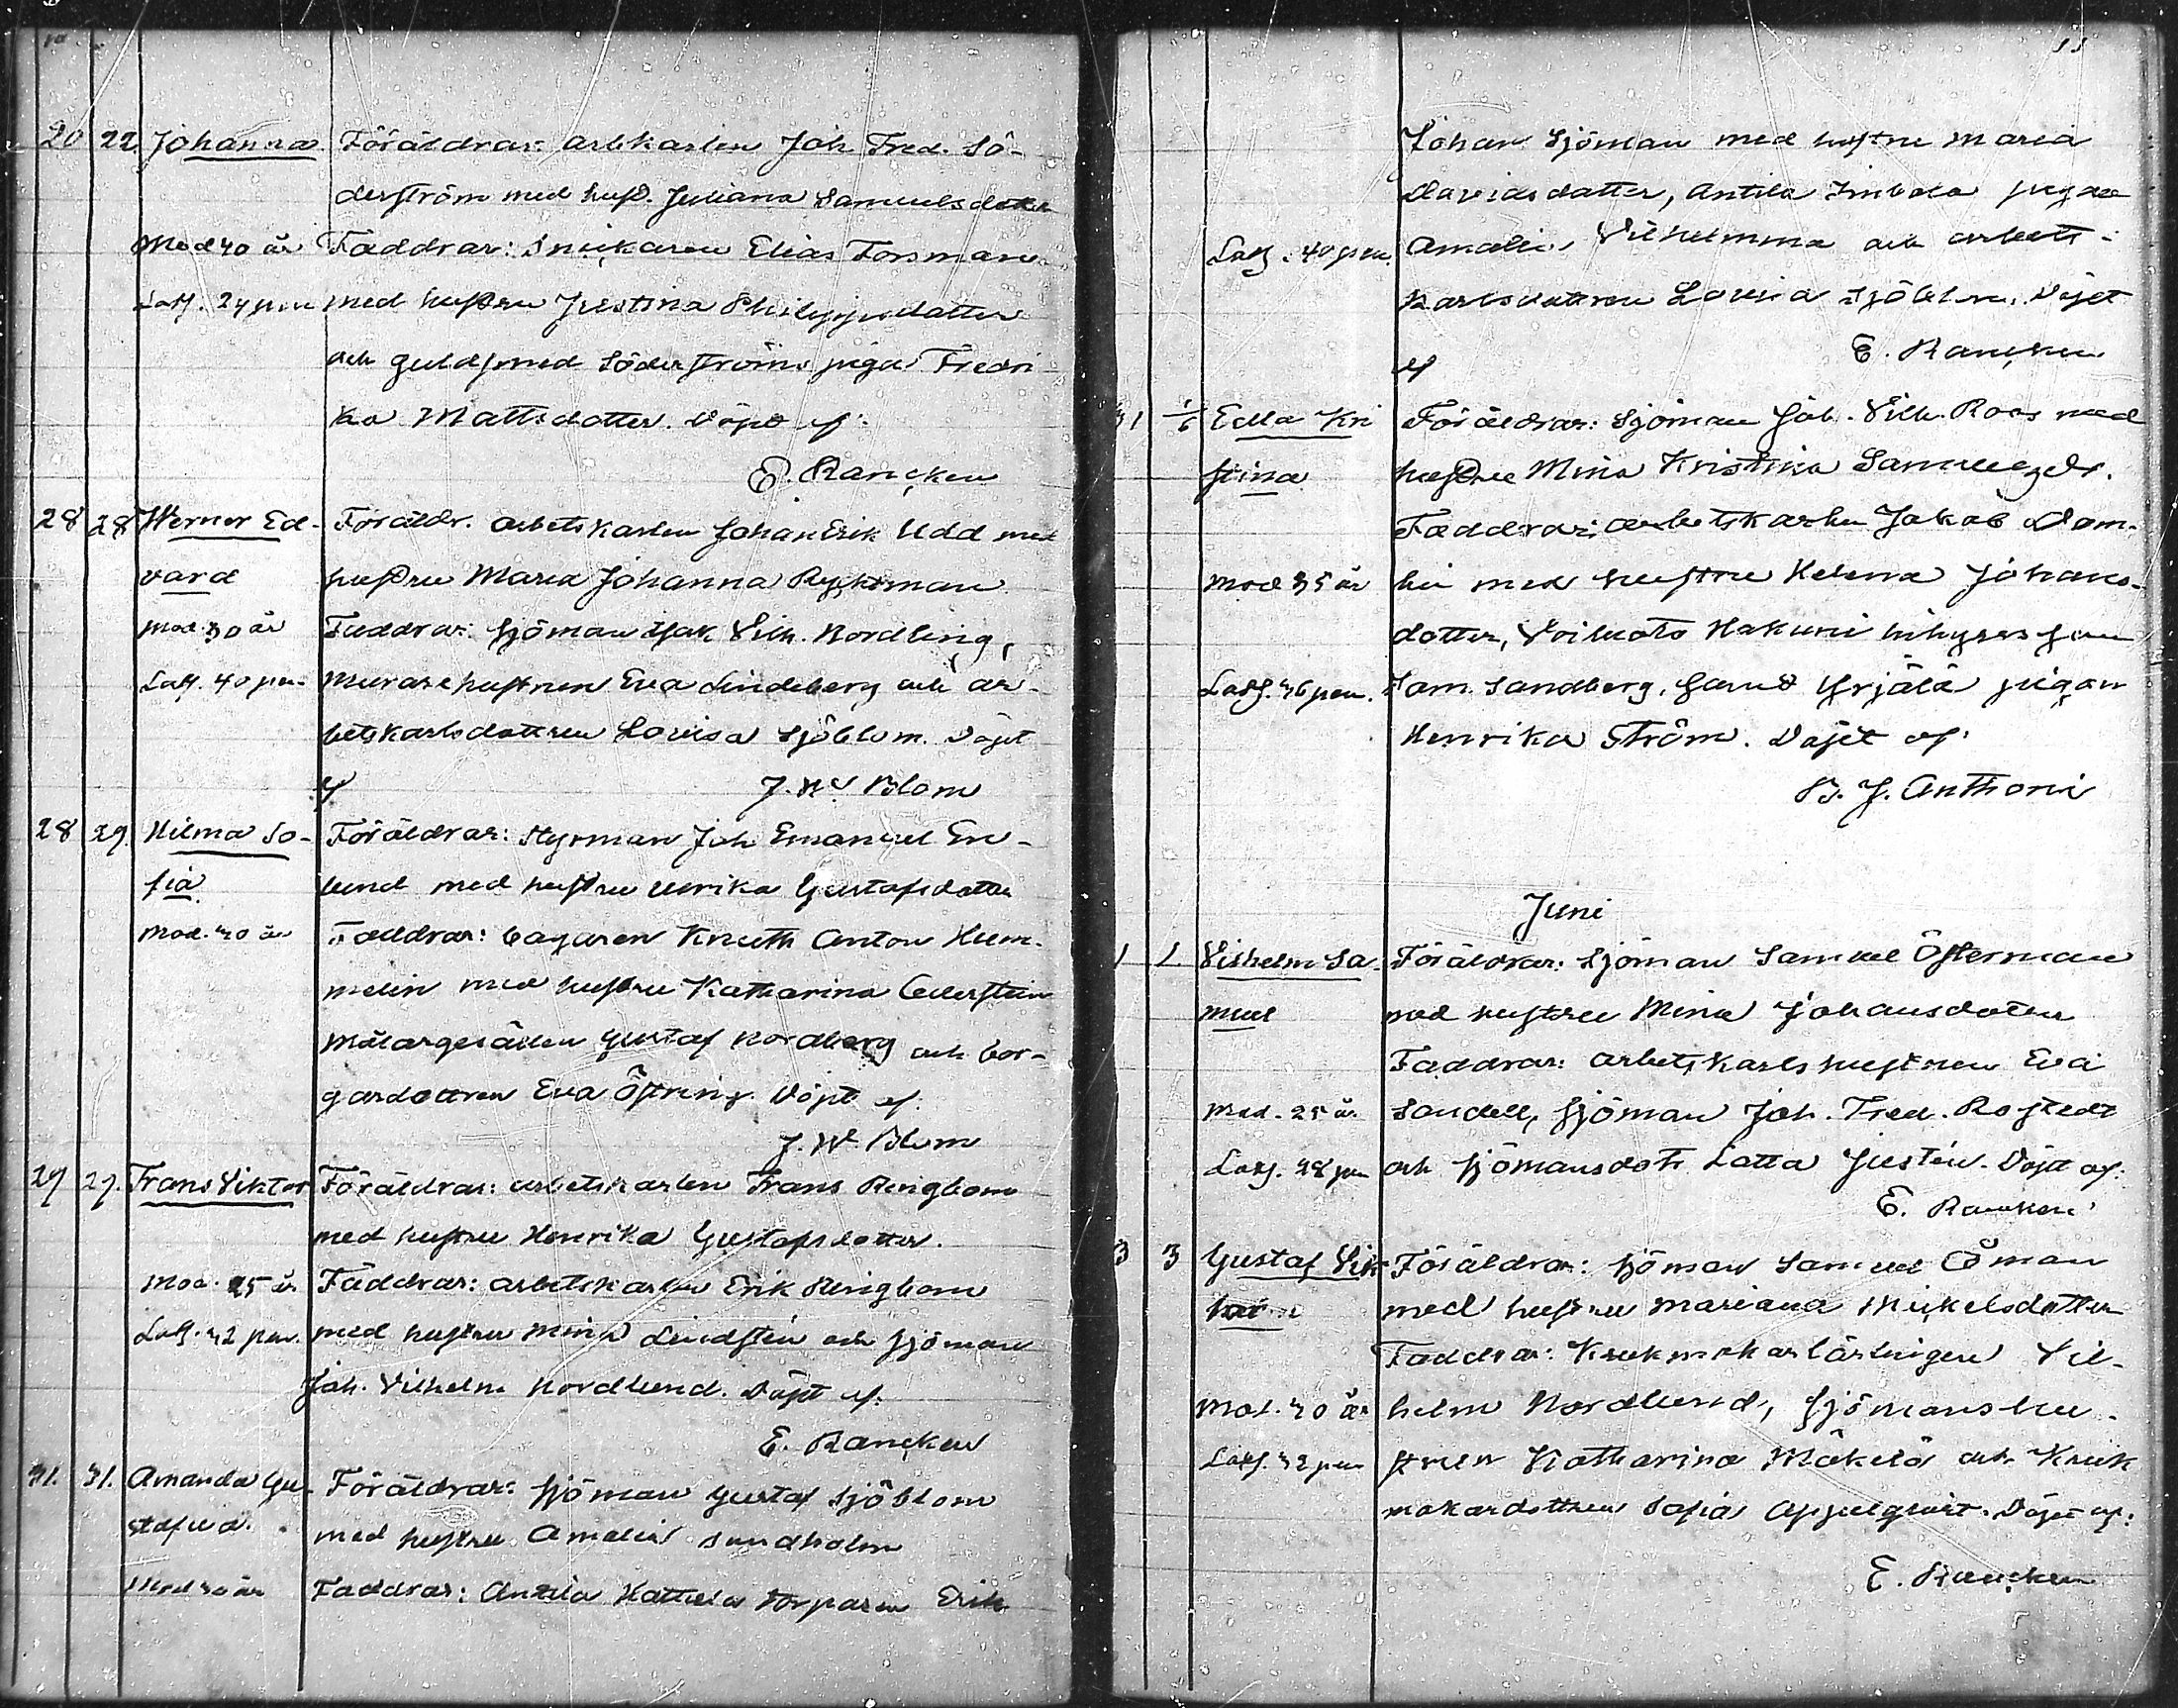 10
20 22. Johanna. Föräldrar: arbkarlen Joh. Fred. Sö-
derström med hust. Juliana Samuelsdotter
Mod 40 år Faddrar: Snickaren Elias Forsman
Löss. 24 pen med hustru Justina Philippsdotter
och guldsmed Söderströms piga Fredri
ka Mattsdotter. Döpt af:
E. Rancken
28 28 Werner Ed- Föräldr. arbetskarlen Johan Erik Udd med
vard hustru Maria Johanna Ryktman
Mod. 30 år Faddrar: sjöman Isak Vilh. Nordling,
40 pen. murarehustrun Eva Lindeberg och ar-
betskarlsdottren Lovisa Sjöblom. Döpt
af J. W. Blom
28 29. Hilma So- Föräldrar: Styrman Joh Emanuel En-
fia lund med hustru Ulrika Gustafsdotter
Mod. 40 år Faddrar: bagaren Knuth Anton Hum-
melin med hustru Katharina Cederstein
målargesällen Gustaf Nordberg och bor-
gardottren Eva Östring. Döpt af.
J. W. Blom
29 29. Frans Viktor Föräldrar: arbetskarlen Frans Ringbom
med hustru Henrika Gustafsdotter.
Mod. 25 år Faddrar: arbetskarlen Erik Ringbom
42 pen. med hustru Mina Lindstén och sjöman
Joh. Vilhelm Nordlund. Döpt af:
E. Rancken
31. 31. Amanda Gu- Föräldrar: sjöman Gustaf Sjöblom
stafva. med hustru Amalia Sundholm
Mod 30 år Faddrar: Antila Hattula torparen Erik
11
Johan Sjöman med hustru Maria
Davidsdotter, Antila pigan
40 pen. Amalia Vilhelmina och arbets-
karlsdottren Lovisa Sjöblom. Döpt
af E. Rancken
31 1/6 Edla Kri Föräldrar: Sjöman Joh. Vilh. Roos med
stina hustru Mina Kristina
Faddrar: arbetskarlen Jakob Dom-
Mod 35 år lin med hustru Helena Johans-
dotter, Voiluoto Hakuni inhyses
46 pen. Sam. Sandberg, samt Yrjälä pigan
Henrika Ström. Döpt af:
B. J. Anthoni
Juni
1 1. Vilhelm Sa- Föräldrar: Sjöman Samuel Österman
muel med hustru Mina Johansdotter
Faddrar: arbetskarlshustrun Eva
Mod. 25 år Sandell, sjöman Joh. Fred. Rostedt
28 pen och sjömansdotr Lotta Justén. Döpt af:
E. Rancken
3 3 Gustaf Vik Föräldrar: sjöman Samuel Öman
tor med hustru Mariana Mickelsdotter
Faddrar: Krukmakarlärlingen Vil-
Mod. 40 år helm Nordlund, sjömanshu-
32 pen strun Katharina Mäkelä och Kruk
makardottren Sofia Appelqvist. Döpt af:
E. Rancken